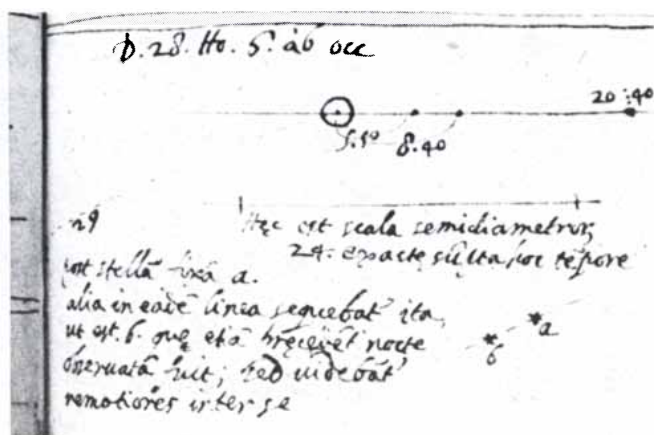 D. 28. Ho. 5. ab occ
20:40
5.50 8.40
29
Hęc est scala semidiametror
24. exacte sūpta hoc tēpore
post stellā fixā a.
alia in eadē linea sequebat ita
ut est. b. quę etiā pręcedēt nocte
obseruata fuit; sed uidebāt
remotiores inter se
a
b